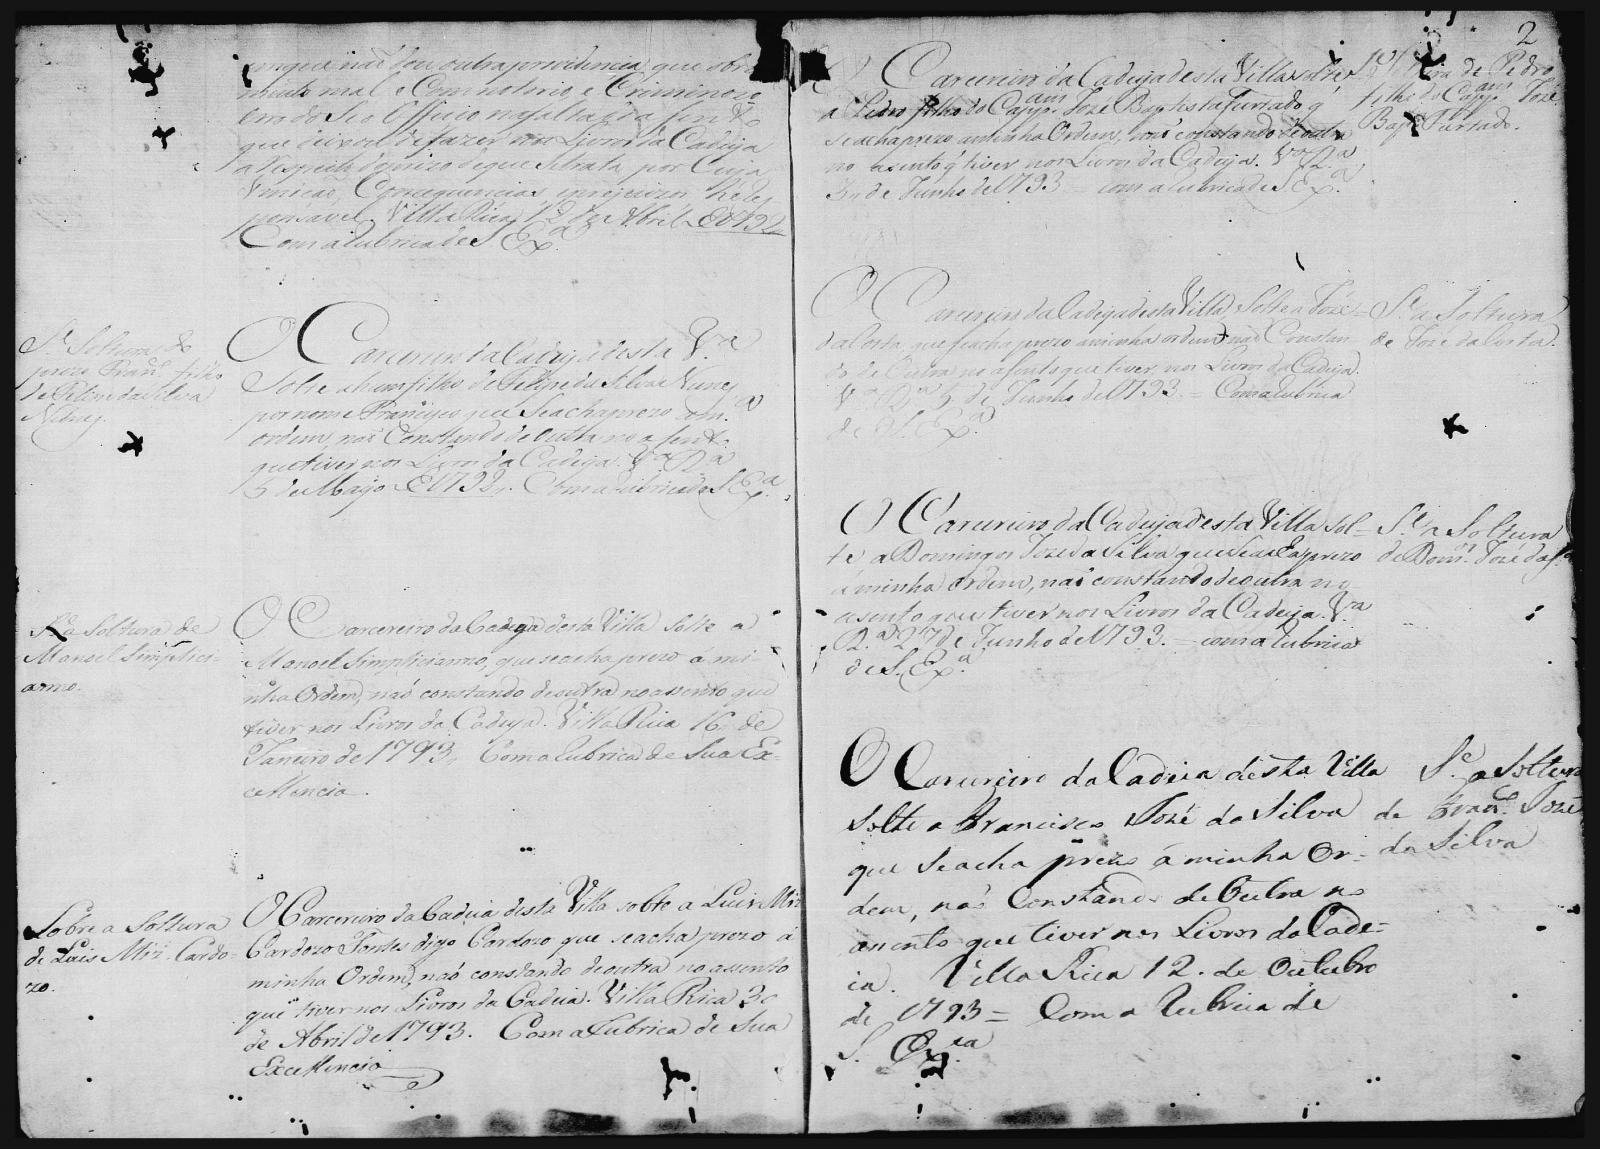 que não dou outra providencia, que obri
mento mal e Com notorio, e Criminozo
erro do Seo Officio na falta da
que deixou de fazer nos Livros da Cadeya
a respeito do prezo de que Se trata por Cuja
Omissão, Consequencias, e prejuizos he Res
ponsavel. Villa Rica 12 de Abril de 1792
Com a Rubrica de S. Ex.ª
S.e Soltura do
prezo Fran.co filho
de Felipe da Silva
Nunes.
O Carcereiro da Cadeya desta V.ª
Solte a hum filho de Felipe da Silva Nunes
por nome Francisco que Se acha prezo a m.ª
ordem, não Constando de outra no assento
que tiver nos Livros da Cadeya. V.ª R.ª
5 de Mayo de 1792. Com a rubrica de S. Ex.ª
S.e a Soltura de
Manoel Simplici-
anno.
O Carcereiro da Cadeya desta Villa solte a
Manoel Simplicianno, que se acha prezo á mi-
nha Ordem, naõ constando de outra no assento que
tiver nos Livros da Cadeya. Villa Rica 16 de
Janeiro de 1793. Com a Rubrica de Sua Ex-
cellencia.
Sobre a Soltura
de Luis Miz. Cardo-
zo.
O Carcereiro da Cadeia desta Villa solte a Luis Miz
Cardozo Fontes digo Cardozo que se acha prezo á
minha Ordem, naõ constando de outra no assento
que tiver nos Livros da Cadeia. Villa Rica 30
de Abril de 1793. Com a Rubrica de Sua
Excellencia
2
O Carcereiro da Cadeya desta Villa solte
a Pedro filho do Cap.am José Baptista Furtado q
se acha prezo a minha Ordem, naõ constando de outra
no asento q tiver nos Livros da Cadeya. V.ª R.ª
5 de Junho de 1793 = com a rubrica de S. Ex.ª
Soltura de Pedro
filho do Cap.am José
Bap.ta Furtado.
O Carcereiro da Cadeya desta Villa Solte a José
da Costa, que se acha prezo a minha ordem, naõ Constan
do de Outra no assento que tiver nos Livros da Cadeya.
V.ª R.ª 5 de Junho de 1793. = Com a rubrica
de S. Ex.ª
S.e a Soltura
de José da Costa.
O Carcereiro da Cadeya desta Villa sol=
te a Domingos Joze da Silva que se acha prezo
á minha ordem, naõ constando de outra no
asento que tiver nos Livros da Cadeya. V.ª
R.ª 27 de Junho de 1793. = com a rubrica
de S. Ex.ª
S.e a Soltura
de Dom.os José da S.ª
O Carcereiro da Cadeia desta Villa
solte a Francisco José da Silva
que se acha prezo á minha Or=
dem, naõ Constando de Outra no
asento que tiver nos Livros da Cade=
ia. Villa Rica 12. de Outubro
de 1793 = Com a Rubrica de
S. Ex.ia
S.e a Soltura
de Fran.co José
da Silva